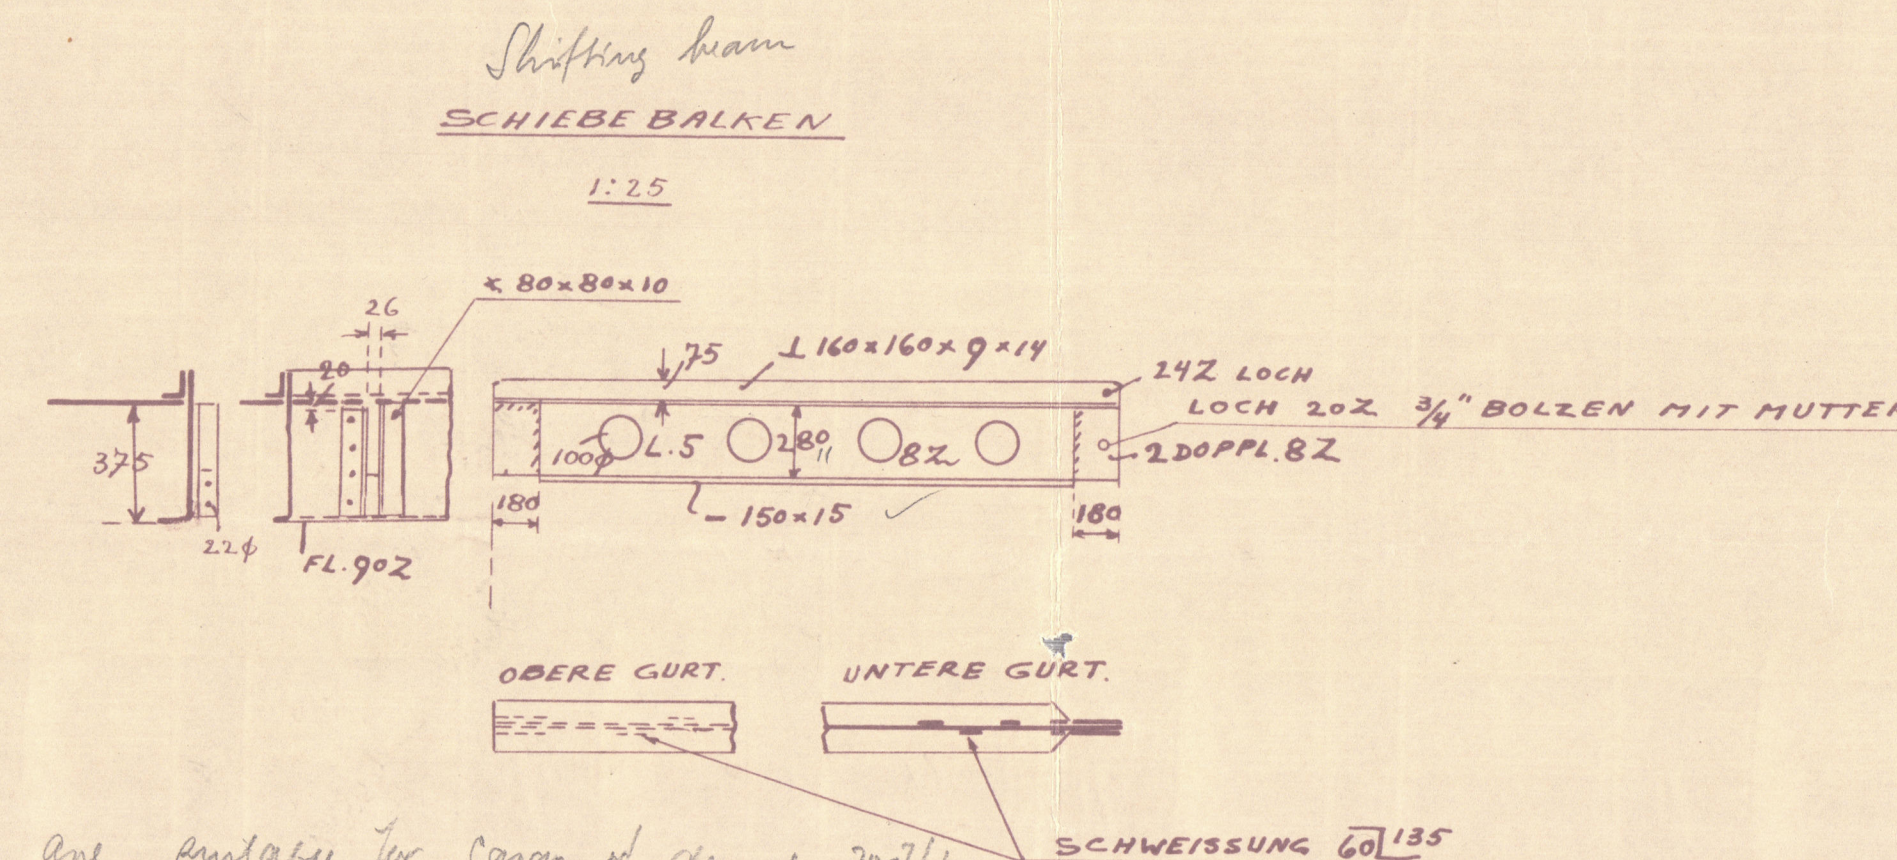 Shifting beam
SCHIEBE BALKEN
1:25
∠ 80x80x10
26
20
75
⊥ 160x160x9x14
24Z LOCH
LOCH 20Z 3/4" BOLZEN MIT MUTTER
375
100φ
L.5
280
8Z
2 DOPPL. 8Z
180
— 150x15
180
22φ
FL. 90Z
OBERE GURT.
UNTERE GURT.
SCHWEISSUNG 60 135
are